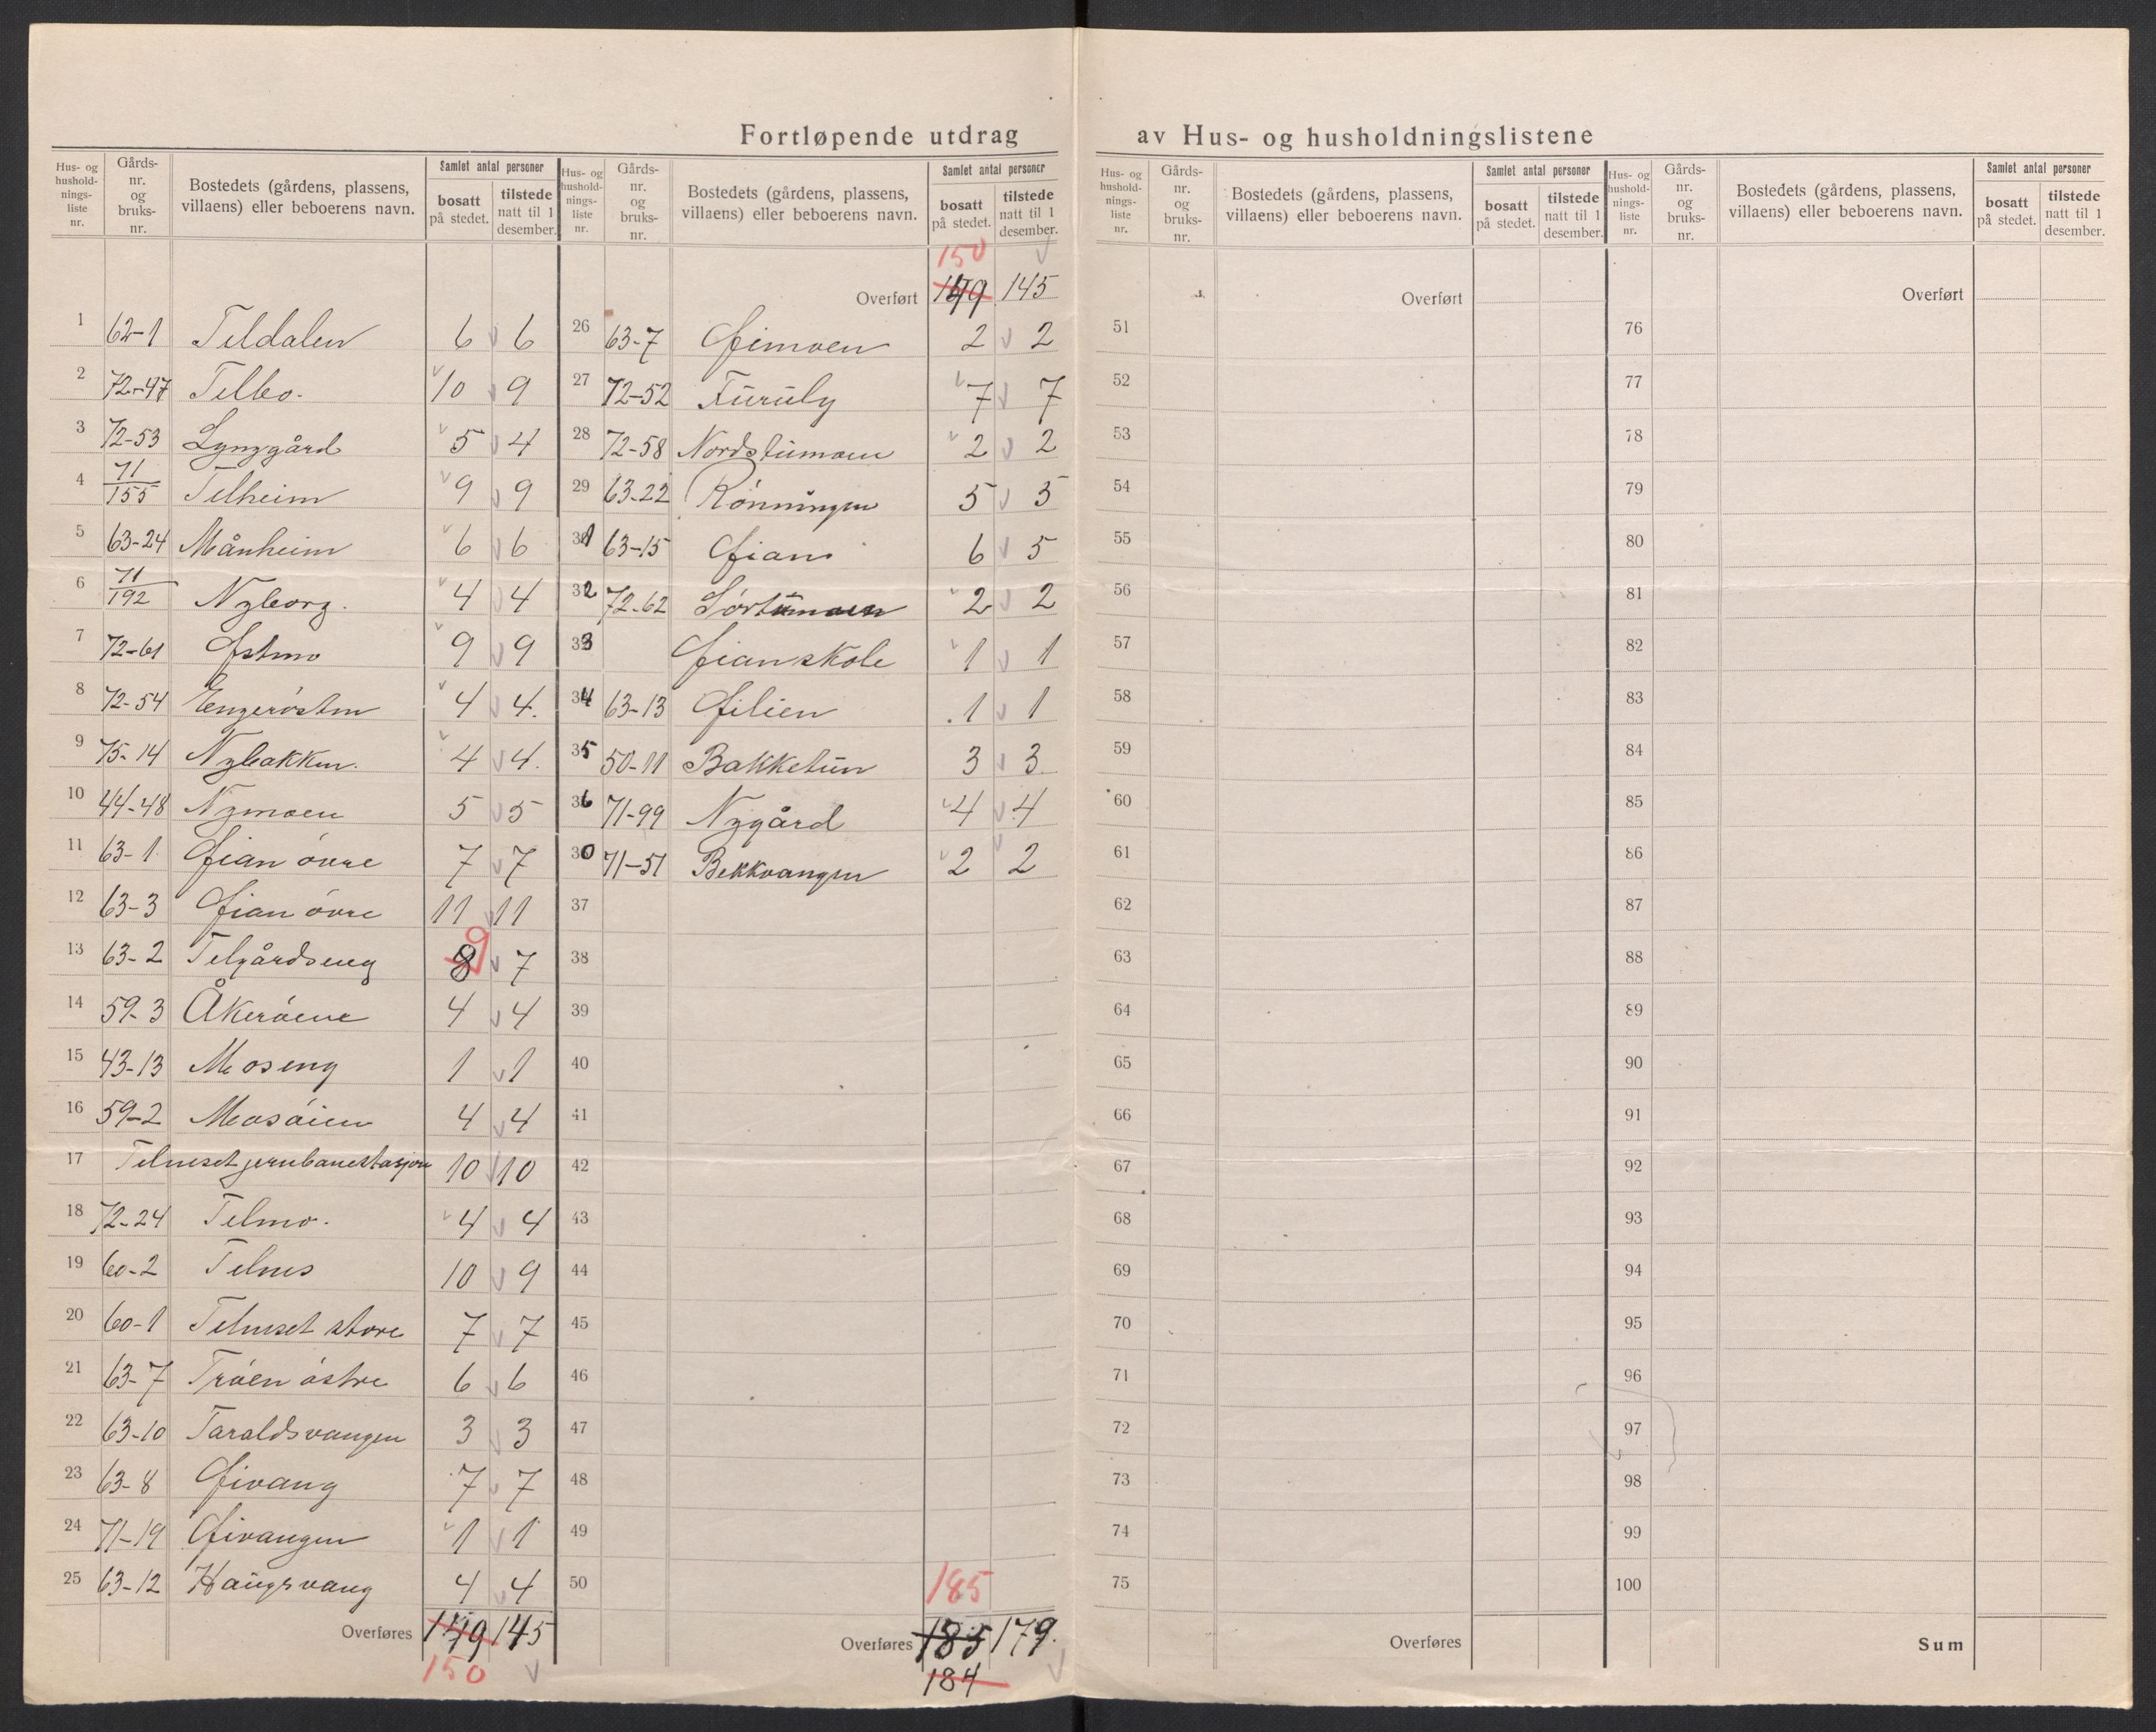 Fortløpende utdrag av Hus- og husholdningslistene
Hus- og husholdningsliste nr. | Gårdsnr. og bruksnr. | Bostedets (gårdens, plassens, villaens) eller beboerens navn. | Samlet antal personer | bosatt på stedet. | tilstede natt til 1 desember.
1 62-1 Teldalen 6 6
2 72-47 Telbo. 10 9
3 72-53 Lynggård 5 4
4 71/155 Telheim 9 9
5 63-24 Månheim 6 6
6 71/192 Nyborg. 4 4
7 72-61 Østmo 9 9
8 72-54 4 4.
9 75-14 Nybakken. 4 4.
10 44-48 Nymoen 5 5
11 63-1 øvre 7 7
12 63-3 øvre 11 11
13 63-2 Telgårdseng 8 9 7
14 59-3 Åkerøene 4 4
15 43-13 Moseng 1 1
16 59-2 Mosøien 4 4
17 Telneset jernbanestasjon 10 10
18 72-24 Telmo. 4 4
19 60-2 Telnes 10 9
20 60-1 Telneset store 7 7
21 63-7 Trøen østre 6 6
22 63-10 Taraldsvangen 3 3
23 63-8 7 7
24 71-19 1 1
25 63-12 Haugsvang 4 4
Overføres 149 145
150
Hus- og husholdningsliste nr. | Gårdsnr. og bruksnr. | Bostedets (gårdens, plassens, villaens) eller beboerens navn. | Samlet antal personer | bosatt på stedet. | tilstede natt til 1 desember.
150
Overført 149 145
26 63-7 2 2
27 72-52 Furuly 7 7
28 72-58 Nordstumoen 2 2
29 63-22 Rønningen 5 5
31 63-15 6 5
32 72-62 Sørtumoen 2 2
33 1 1
34 63-13 1 1
35 50-11 Bakketun 3 3
36 71-99 Nygård 4 4
30 71-51 Bekkvangen 2 2
37
38
39
40
41
42
43
44
45
46
47
48
49
50
185
Overføres 185 179.
184
Hus- og husholdningsliste nr. | Gårdsnr. og bruksnr. | Bostedets (gårdens, plassens, villaens) eller beboerens navn. | Samlet antal personer | bosatt på stedet. | tilstede natt til 1 desember.
Overført
51
52
53
54
55
56
57
58
59
60
61
62
63
64
65
66
67
68
69
70
71
72
73
74
75
Overføres
Hus- og husholdningsliste nr. | Gårdsnr. og bruksnr. | Bostedets (gårdens, plassens, villaens) eller beboerens navn. | Samlet antal personer | bosatt på stedet. | tilstede natt til 1 desember.
Overført
76
77
78
79
80
81
82
83
84
85
86
87
88
89
90
91
92
93
94
95
96
97
98
99
100
Sum